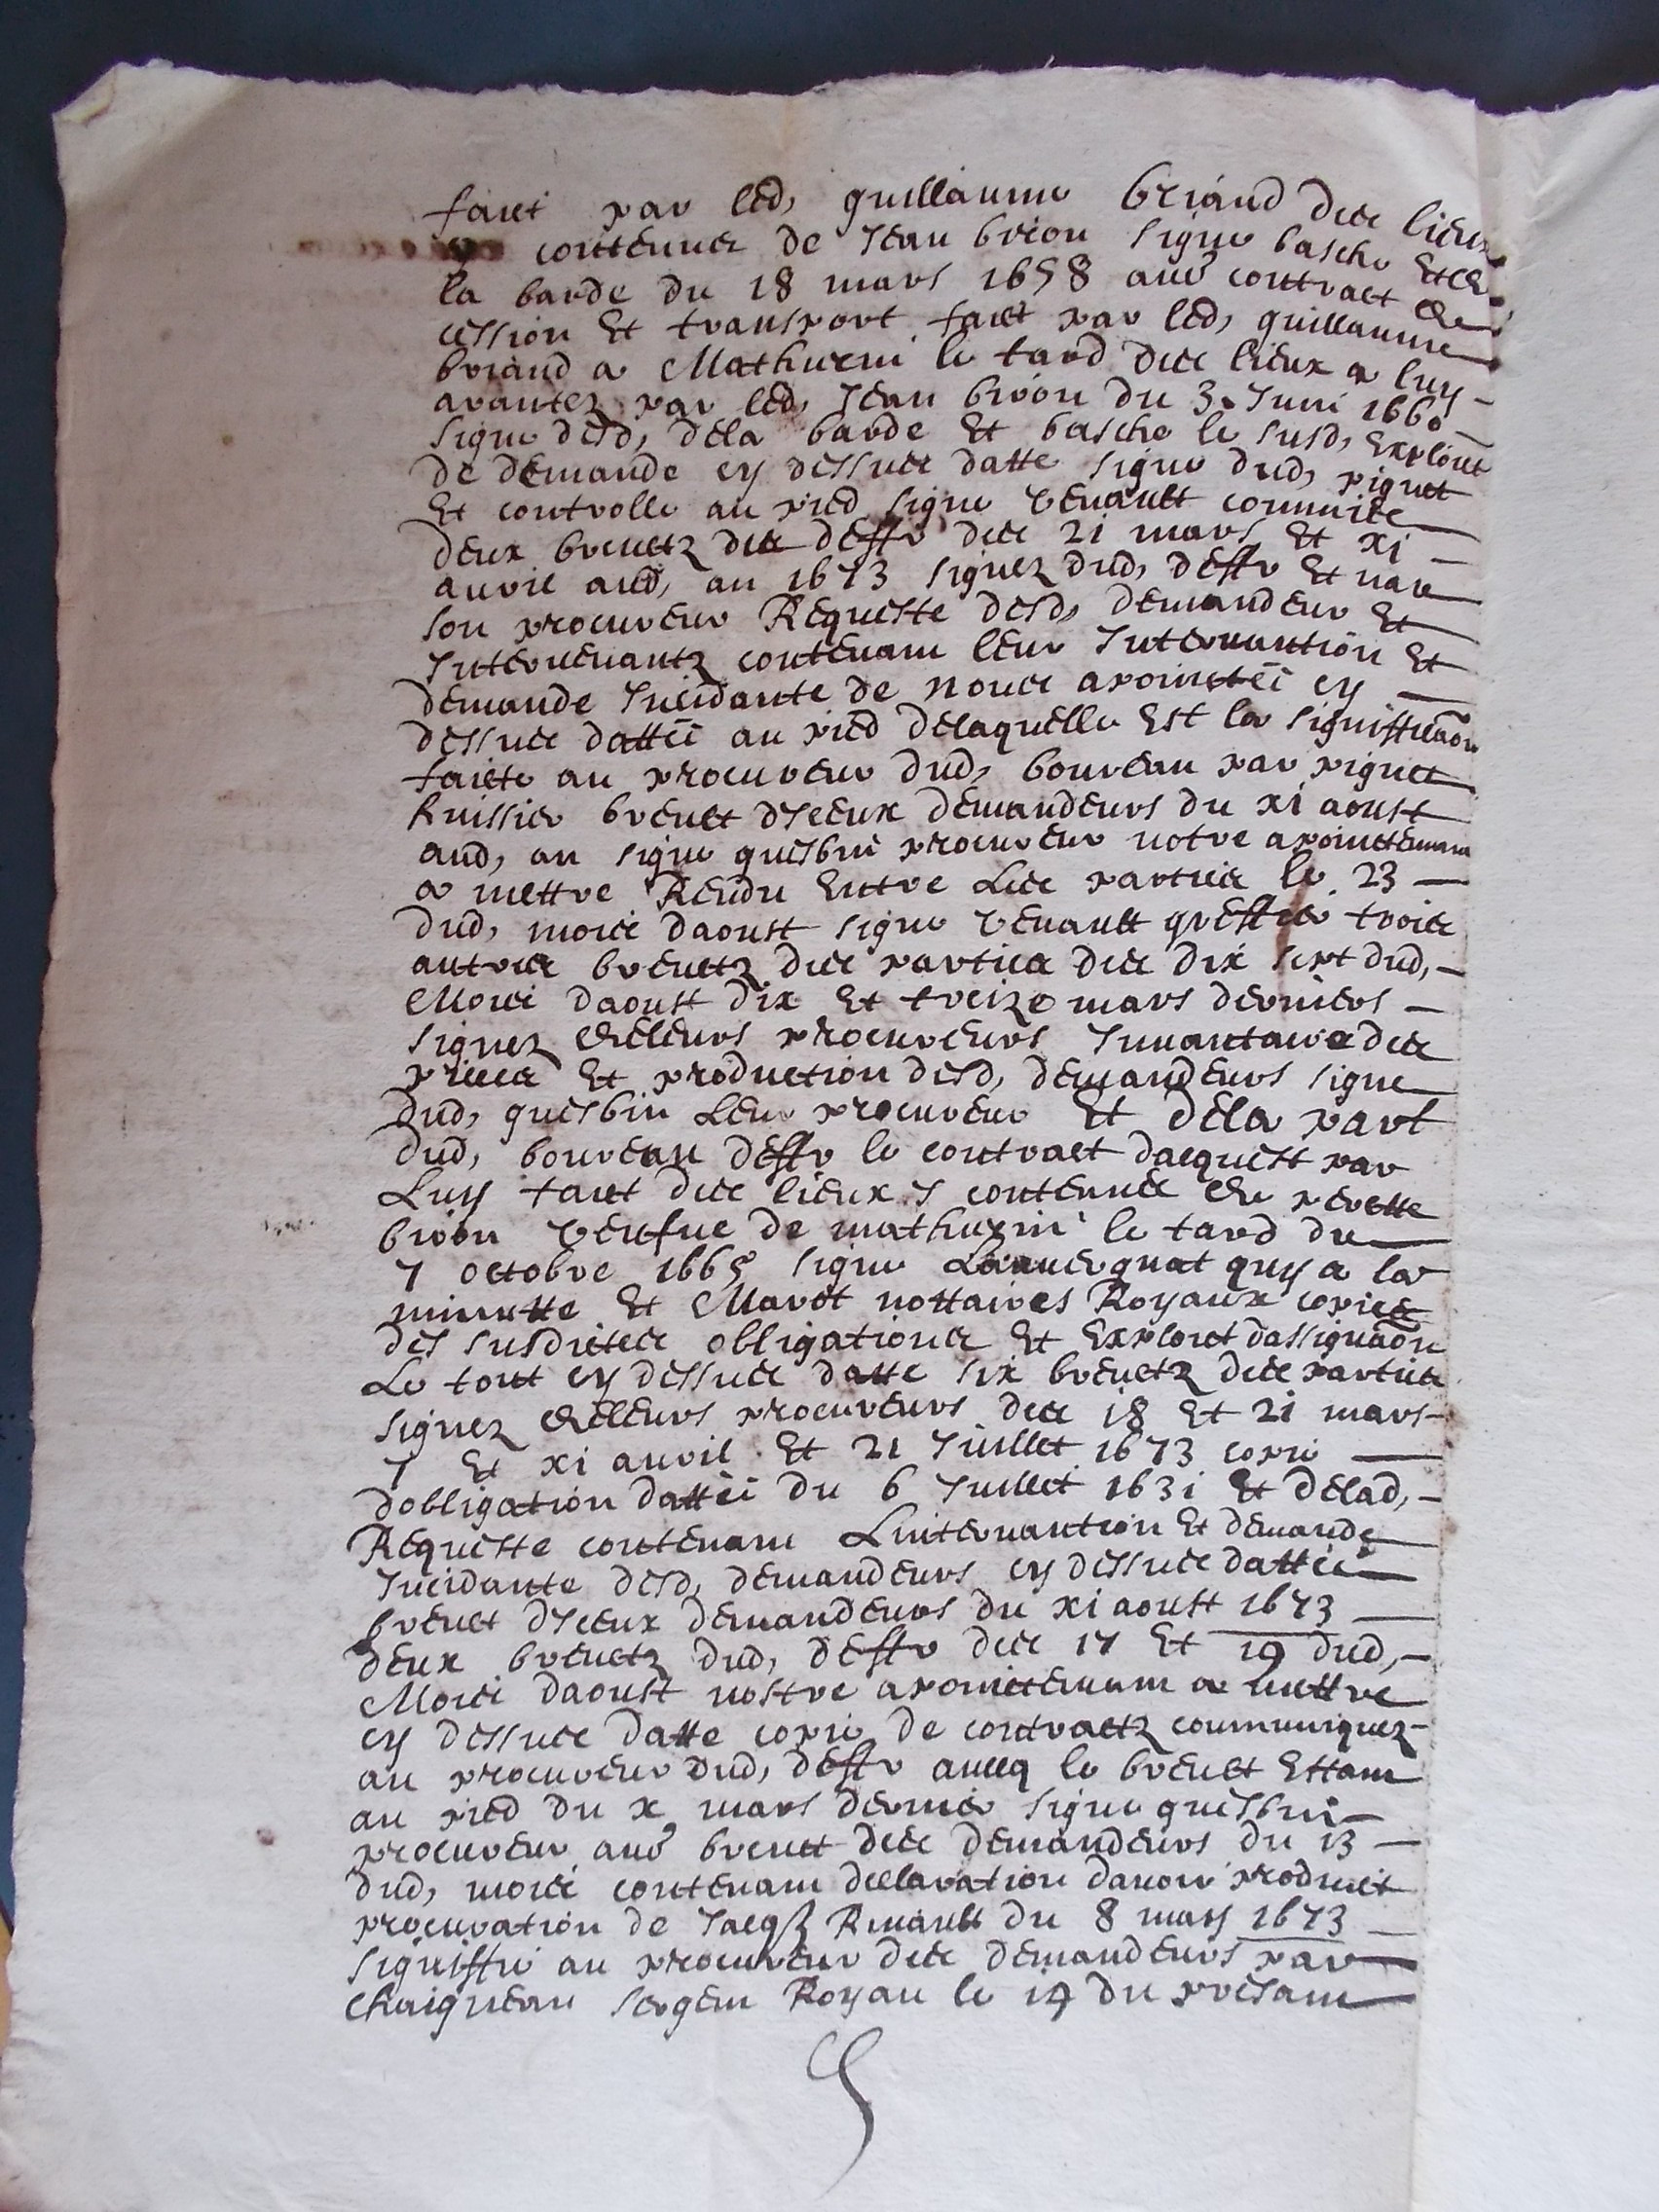 faict par led, guillaume briand des lieux
y contenus de Jean brion signe basche et de
la barde du 18 mars 1658 aud contract de
cession et transport faict par led, guillaume
briand a Mathurin le tard des lieux a luy
arantez par led, Jean brion du 3. Juin 1660
signe desd, dela barde et basche le susd, exploict
de demande cy dessus datte signe dud, piguet
et controlle au pied signe Venault commice
deux breuetz des deffr des 21 mars et xi
auril aud, an 1673 signez dud, deffr et par
son procureur Requeste desd, demandeur et
Interuenantz contenant leur Interuantion et
demande Incidante de nous apoinctée cy
dessus dattée au pied delaquelle est la signiffication
faicte au procureur dud, boureau par piguet
huissier breuet diceux demandeurs du xi aoust
aud, an signe guisbin procureur notre apoinctemant
a mettre Rendu entre Les parties le 23
dud, mois daoust signe Venault greffier trois
autres breuetz des parties des dix sept dud,
Mois daoust dix et treize mars derniers
signez de leurs procureurs Inuantaire des
pieces et production desd, demandeurs signe
dud, guisbin Leur procureur et dela part
dud, boureau deffr le contract dacquest par
Luy faict des lieux y contenus de perette
brion Veufue de mathurin le tard du
7 octobre 1665 signe Lauuergnat quy a la
minutte et Marot nottaires Royaux copies
des susdictes obligations et exploict dassignaon
Le tout cy dessus datte six breuetz des parties
signez de leurs procureurs des 18 et 21 mars
7 et xi auril et 21 Juillet 1673 copie
dobligation dattée du 6 Juillet 1631 et delad,
Requeste contenant Linteruantion et demande
Incidante desd, demandeurs cy dessus dattée
breuet diceux demandeurs du xi aoust 1673
deux breuetz dud, deffr des 17 et 19 dud,
Mois daoust nostre apoinctemant a mettre
cy dessus datte copie de contractz communiquez
au procureur dud, deffr auecq le breuet estant
au pied du x mars dernier signe guisbin
procureur aud breuet des demandeurs du 13
dud, mois contenant declaration dauoir produict
procuration de Jacqs Renault du 8 may 1673
signiffie au procureur des demandeurs par
Chaigneau sergent Royau le 19 du presant